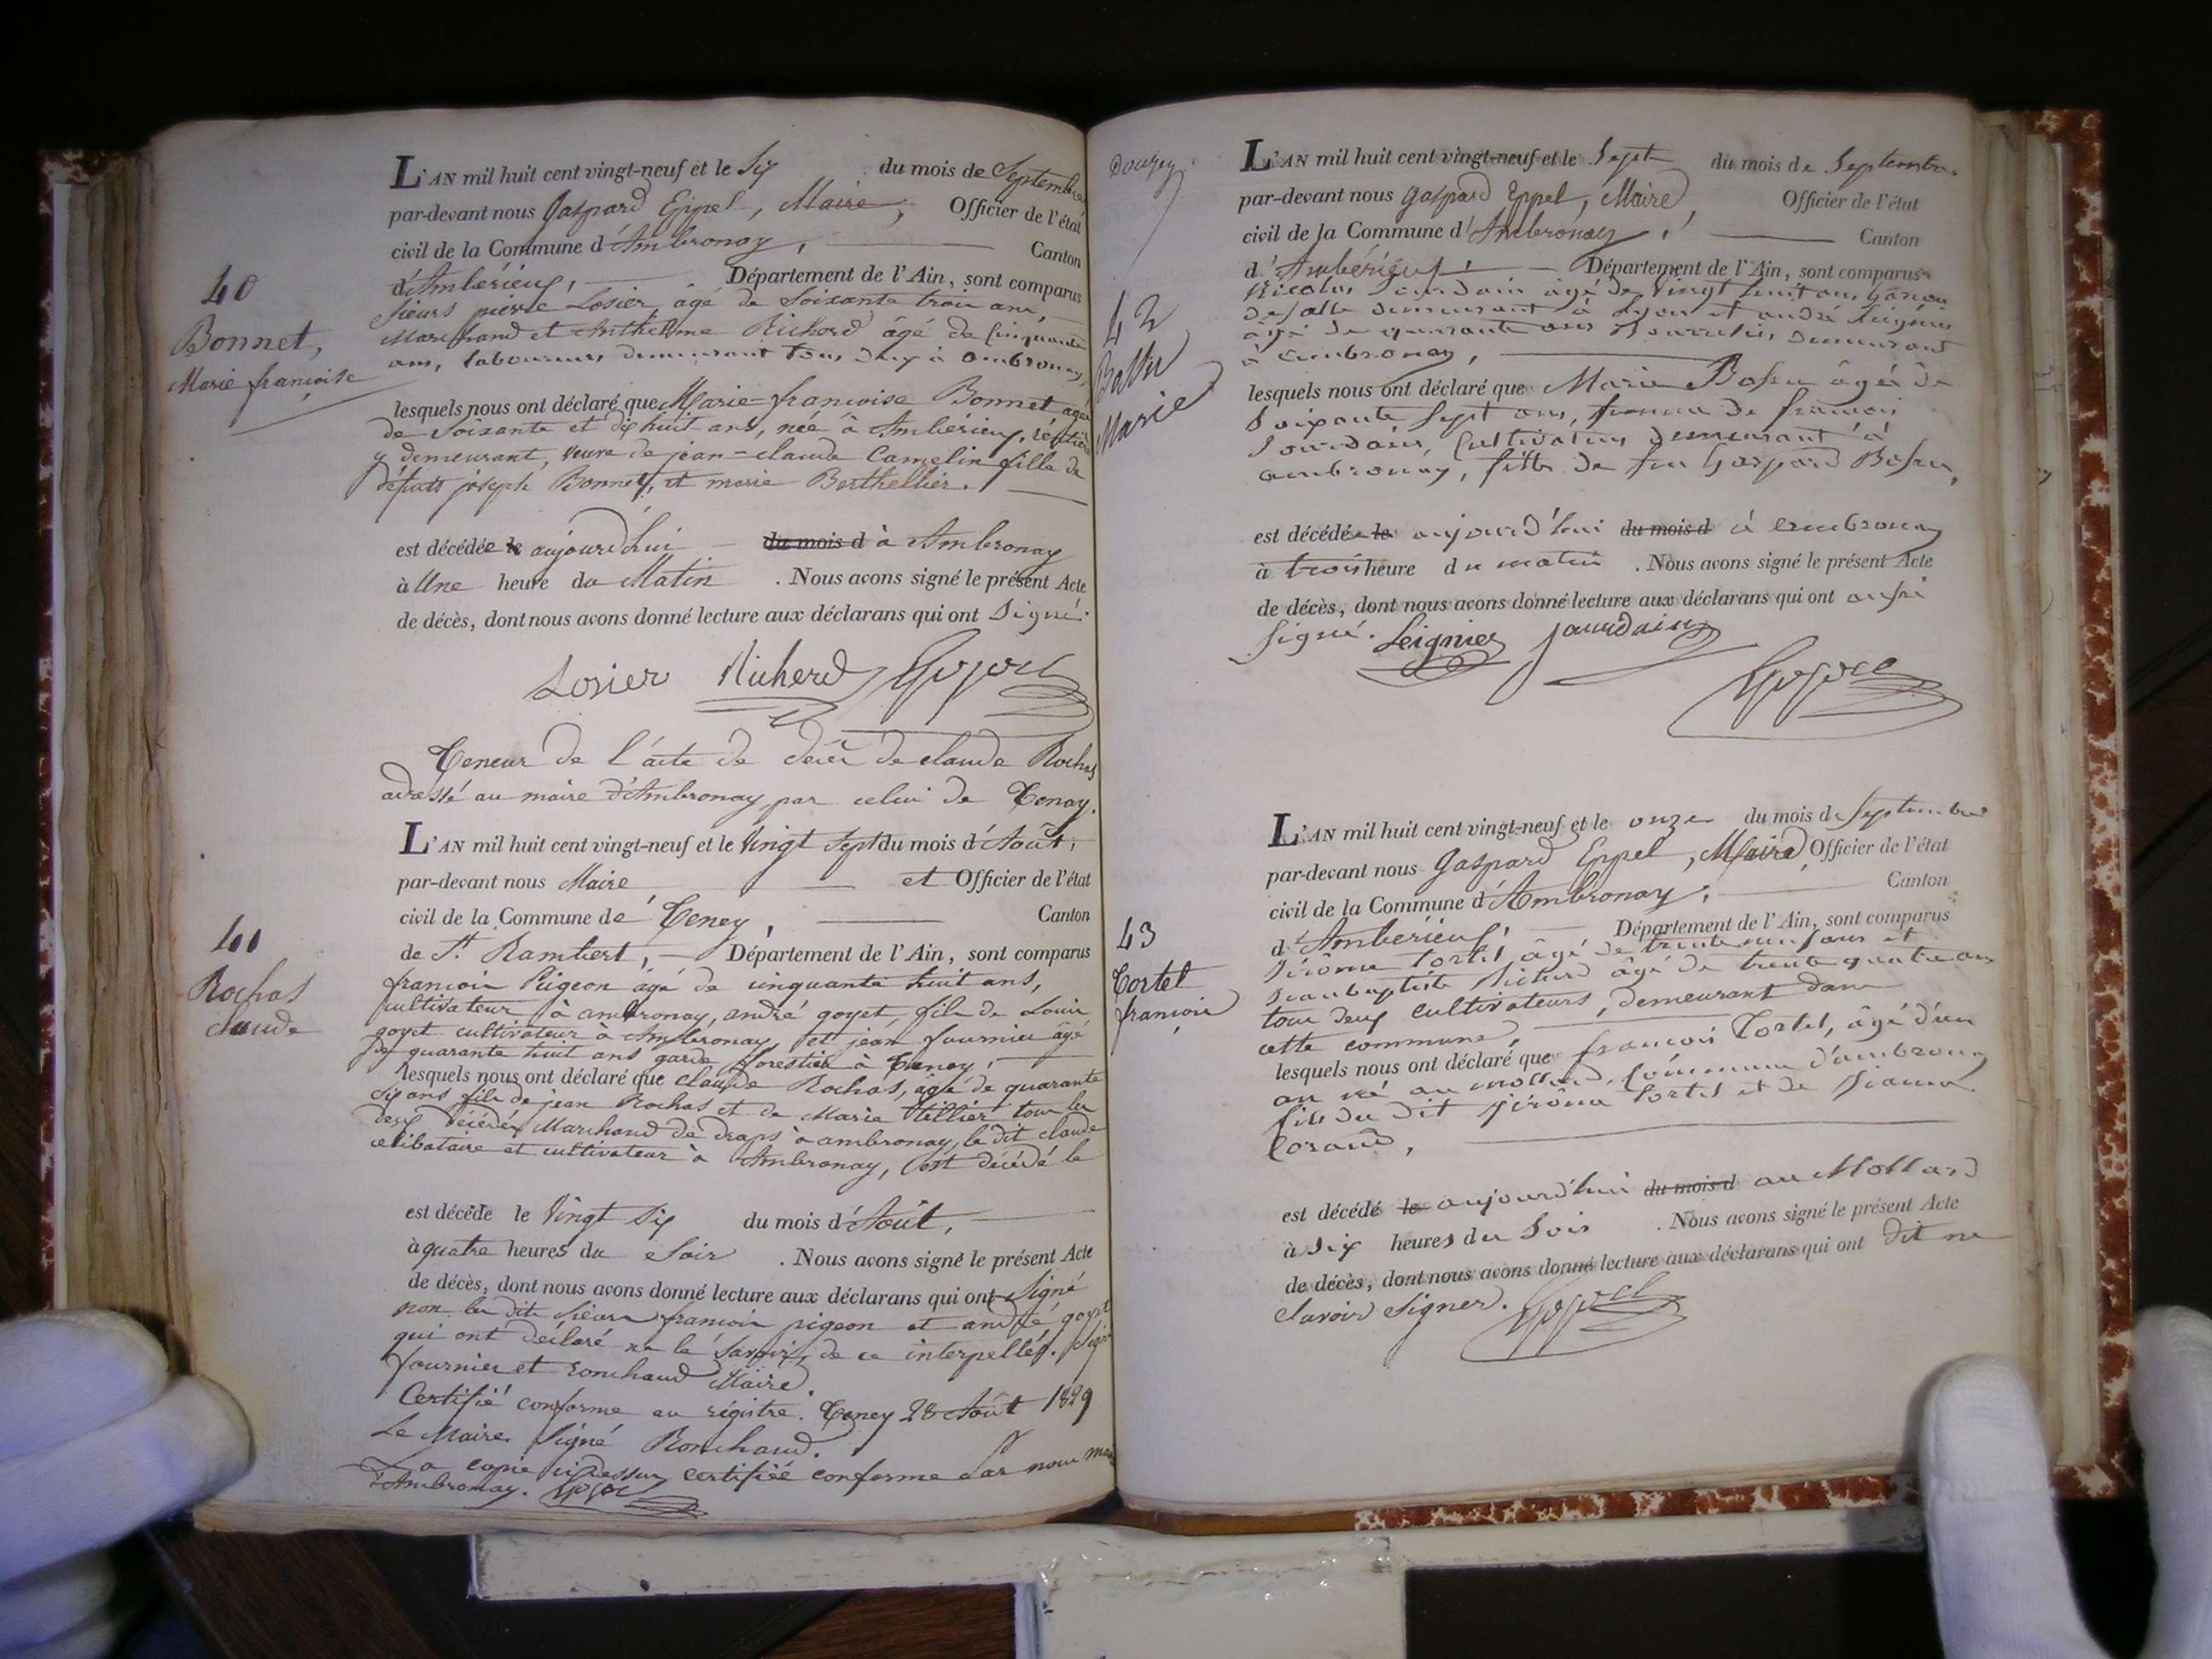 L'AN mil huit cent vingt-neuf et le Six du mois de Septembre
par-devant nous Gaspard Eppel, Maire, Officier de l'état
civil de la Commune d'Ambronay, Canton
d'Ambérieux, Département de l'Ain, sont comparus
40
Bonnet,
Marie françoise
Sieurs pierre Losier, âgé de Soixante trois ans,
Marchand et Anthelme Richerd âgé de Cinquante
ans, laboureur, demeurant tous deux à ambronay,
lesquels nous ont déclaré que Marie-françoise Bonnet agée
de Soixante et dix huit ans, née à Ambérieux, rentière
y demeurant, veuve de jean-claude Camelin fille de
défunts joseph Bonnet, et marie Berthellier.
est décédée le aujourd'hui du mois d à Ambronay
à Une heure du Matin. Nous avons signé le présent Acte
de décès, dont nous avons donné lecture aux déclarans qui ont Signé.
Losier Richerd Eppel
Teneur de l'acte de décès de claude Rochas
adressé au maire d'Ambronay par celui de Tenay.
L'AN mil huit cent vingt-neuf et le Vingt Sept du mois d'Août,
par-devant nous Maire et Officier de l'état
civil de la Commune de Teney, Canton
de St. Rambert, Département de l'Ain, sont comparus
41
Rochas
claude
françois Pigeon âgé de cinquante huit ans,
cultivateur à ambronay, andré goyet fils de Louis
goyet cultivateur à Ambronay, et jean fournier âgé
de quarante huit ans garde forestier à Tenay,
lesquels nous ont déclaré que claude Rochas, âgé de quarante
Six ans fils de jean Rochas et de Marie tillier tous les
deux décédés Marchand de draps à ambronay, le dit claude
celibataire et cultivateur à Ambronay, est décédé le
est décédé le Vingt Six du mois d'Août,
à quatre heures du Soir. Nous avons signé le présent Acte
de décès, dont nous avons donné lecture aux déclarans qui ont Signé
non les dits Sieurs francois pigeon et andré goyet
qui ont déclaré ne le Savoir, de ce interpellés. Signé
fournier et ronchaud Maire.
Certifié conforme au régistre. Teney 28 Août 1829
Le Maire Signé Ronchaud.
La copie ci dessus certifiée conforme Par nous maire
d'Ambronay. Eppel
Douzey
L'AN mil huit cent vingt-neuf et le Sept du mois de Septembre
par-devant nous gaspard Eppel, Maire, Officier de l'état
civil de la Commune d'Ambronay, Canton
d'Ambérieux, Département de l'Ain, sont comparus
42
Bassu
Marie
Nicolas Jourdain âgé de vingt huit ans, Garçon
de Salle demeurant à Lyon et andré Leignier
âgé de quarante ans Bourrelier, demeurant
à ambronay,
lesquels nous ont déclaré que Marie Bassu âgée de
Soixante Sept ans, femme de francois
Jourdain, Cultivateur demeurant à
ambronay, fille de feu Gaspard Bassu,
est décédée le aujourd'hui du mois d à ambronay
à trois heure du matin. Nous avons signé le présent Acte
de décès, dont nous avons donné lecture aux déclarans qui ont aussi
Signé. Leignier jourdain
Eppel
L'AN mil huit cent vingt-neuf et le onze du mois de Septembre
par-devant nous Gaspard Eppel, Maire, Officier de l'état
civil de la Commune d'Ambronay, Canton
d'Ambérieux, Département de l'Ain, sont comparus
43
Tortel
francois
Jérôme Tortel, âgé de trente neuf ans et
Jean baptiste Richerd âgé de trente quatre ans
tous deux cultivateurs, demeurant dans
cette commune,
lesquels nous ont déclaré que francois Tortel, âgé d'un
an né au mollard, commune d'ambronay
fils du dit jérôme Tortel et de Jeanne
Corand,
est décédé le aujourd'hui du mois d au Mollard
à Six heures du Soir. Nous avons signé le présent Acte
de décès, dont nous avons donné lecture aux déclarans qui ont dit ne
Savoir Signer. Eppel